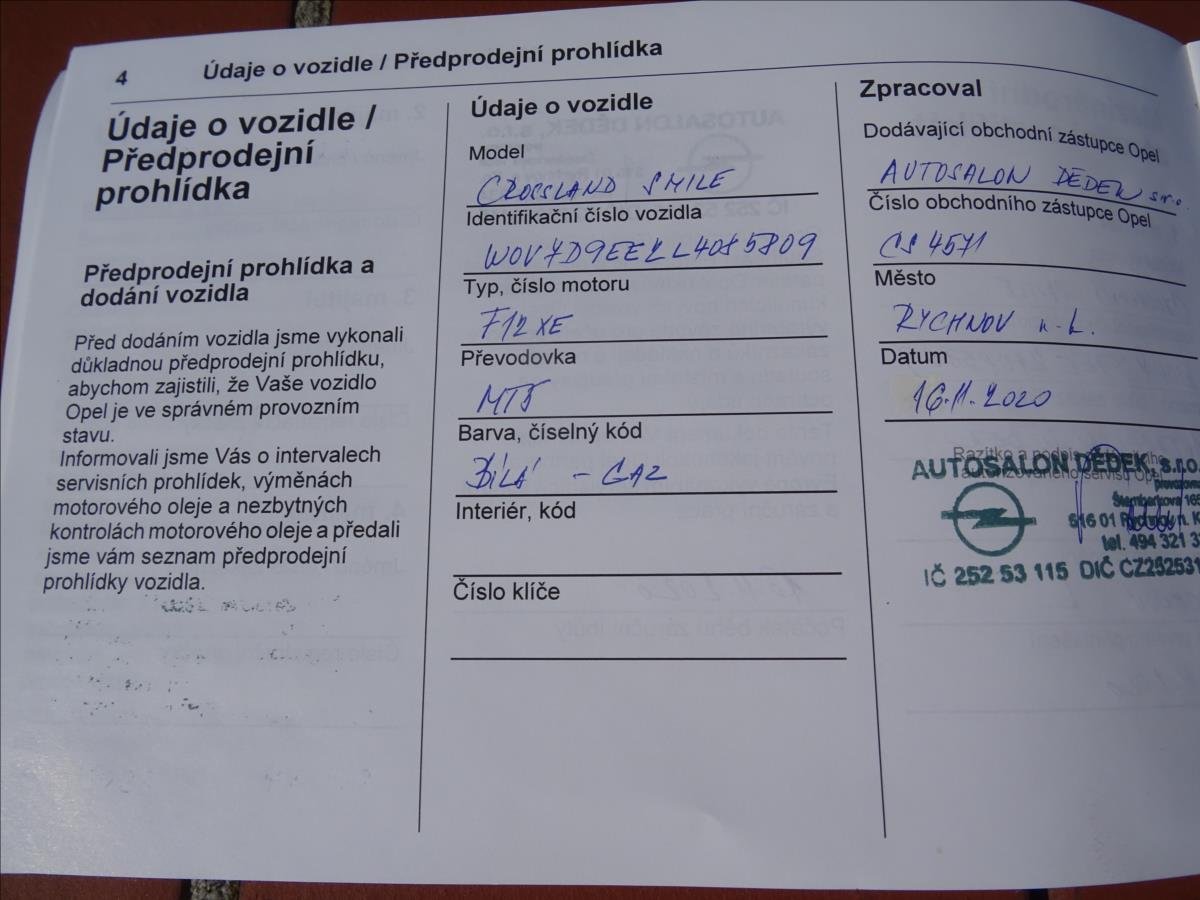 4
Údaje o vozidle / Předprodejní prohlídka
Údaje o vozidle /
Předprodejní
prohlídka
Předprodejní prohlídka a
dodání vozidla
Před dodáním vozidla jsme vykonali
důkladnou předprodejní prohlídku,
abychom zajistili, že Vaše vozidlo
Opel je ve správném provozním
stavu.
Informovali jsme Vás o intervalech
servisních prohlídek, výměnách
motorového oleje a nezbytných
kontrolách motorového oleje a předali
jsme vám seznam předprodejní
prohlídky vozidla.
Údaje o vozidle
Model
CROSSLAND SMILE
Identifikační číslo vozidla
W0V7D9EEKL4085809
Typ, číslo motoru
F12XE
Převodovka
MT5
Barva, číselný kód
BÍLÁ - GAZ
Interiér, kód
Číslo klíče
Zpracoval
Dodávající obchodní zástupce Opel
AUTOSALON DĚDEK s.r.o.
Číslo obchodního zástupce Opel
CS 4571
Město
RYCHNOV n. k.
Datum
16.11.2020
Razítko a podpis
autorizovaného servisu Opel
AUTOSALON DĚDEK, s.r.o.
Štemberkova
516 01 Rychnov n. K
tel. 494 321 3
IČ 252 53 115 DIČ CZ252531